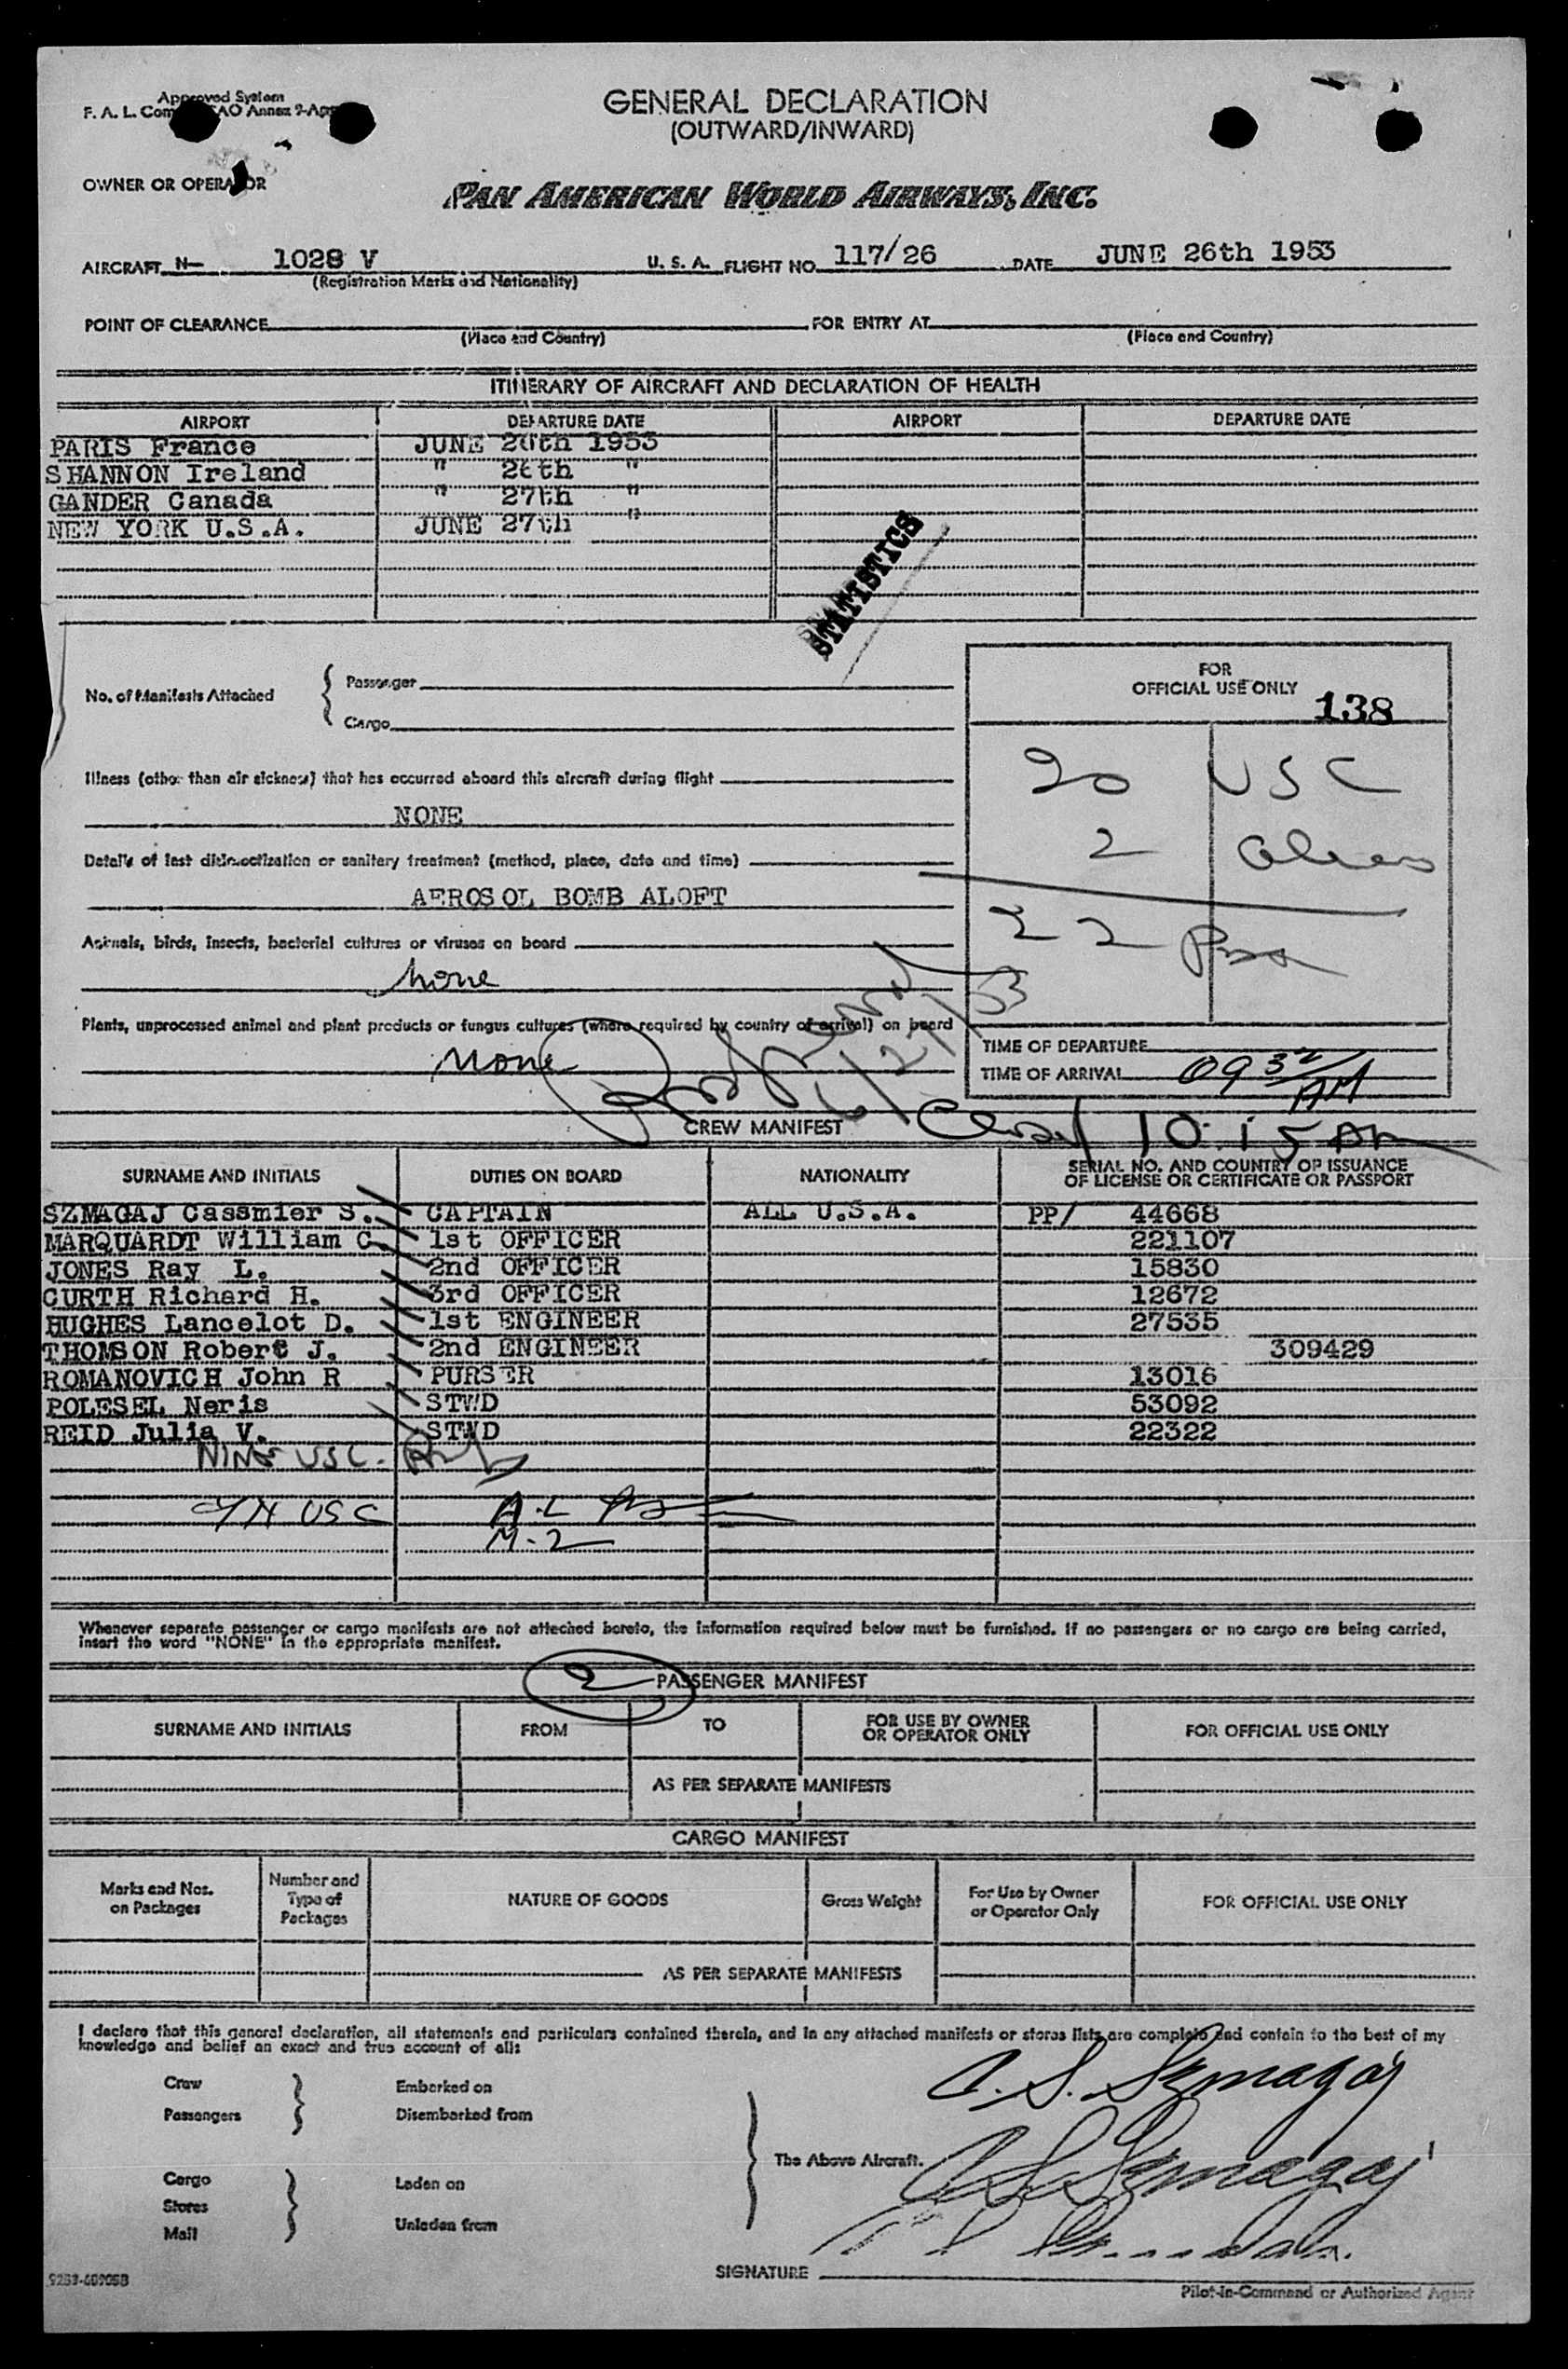 Approved System
F. A. L. Com AO Annex 9-App
GENERAL DECLARATION
(OUTWARD/INWARD)
OWNER OR OPERATOR
PAN AMERICAN WORLD AIRWAYS, INC.
AIRCRAFT N- 1028 V U. S. A. FLIGHT NO. 117/26 DATE JUNE 26th 1953
(Registration Marks and Nationality)
POINT OF CLEARANCE FOR ENTRY AT
(Place and Country) (Place and Country)
ITINERARY OF AIRCRAFT AND DECLARATION OF HEALTH
AIRPORT DEPARTURE DATE AIRPORT DEPARTURE DATE
PARIS France JUNE 26th 1953
SHANNON Ireland " 26th "
GANDER Canada " 27th "
NEW YORK U.S.A. JUNE 27th "
STATISTICS
No. of Manifests Attached { Passenger
Cargo
FOR
OFFICIAL USE ONLY 138
20 USC
2 aliens
22 Pax
Illness (other than air sickness) that has occurred aboard this aircraft during flight
NONE
Details of last disinsectization or sanitary treatment (method, place, date and time)
AEROSOL BOMB ALOFT
Animals, birds, insects, bacterial cultures or viruses on board
None
Plants, unprocessed animal and plant products or fungus cultures (where required by country of arrival) on board
None
6/27/53
TIME OF DEPARTURE
TIME OF ARRIVAL 0932 AM
CREW MANIFEST
Closed 10:15 AM
SURNAME AND INITIALS DUTIES ON BOARD NATIONALITY SERIAL NO. AND COUNTRY OF ISSUANCE
OF LICENSE OR CERTIFICATE OR PASSPORT
SZMAGAJ Cassmier S. CAPTAIN ALL U.S.A. PP/ 44668
MARQUARDT William C. 1st OFFICER 221107
JONES Ray L. 2nd OFFICER 15830
CURTH Richard H. 3rd OFFICER 12672
HUGHES Lancelot D. 1st ENGINEER 27535
THOMSON Robert J. 2nd ENGINEER 309429
ROMANOVICH John R PURSER 13016
POLESEL Neris STWD 53092
REID Julia V. STWD 22322
NINE USC.
USC A-L
M-2
Whenever separate passenger or cargo manifests are not attached hereto, the information required below must be furnished. If no passengers or no cargo are being carried,
insert the word "NONE" in the appropriate manifest.
2 PASSENGER MANIFEST
SURNAME AND INITIALS FROM TO FOR USE BY OWNER
OR OPERATOR ONLY FOR OFFICIAL USE ONLY
AS PER SEPARATE MANIFESTS
CARGO MANIFEST
Marks and Nos.
on Packages
Number and
Type of
Packages
NATURE OF GOODS
Gross Weight
For Use by Owner
or Operator Only
FOR OFFICIAL USE ONLY
AS PER SEPARATE MANIFESTS
I declare that this general declaration, all statements and particulars contained therein, and in any attached manifests or stores lists are complete and contain to the best of my
knowledge and belief an exact and true account of all:
Crew Embarked on
Passengers Disembarked from
C. S. Szmagaj
The Above Aircraft.
C S Szmagaj
Cargo Laden on
Stores
Mail Unladen from
SIGNATURE
Pilot-in-Command or Authorized Agent